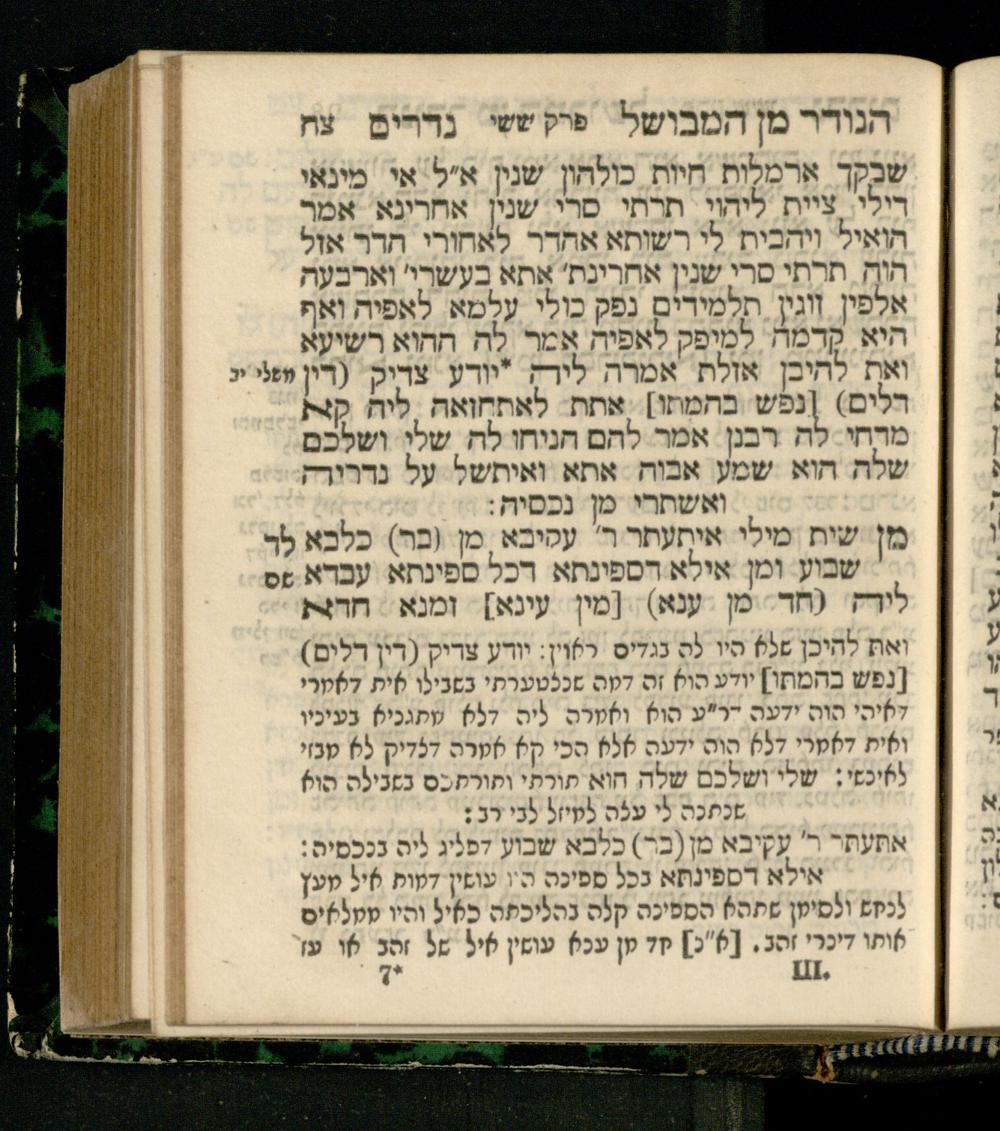 הנודר מן המבושל פרק ששי נדרים צח
שבקך ארמלות חיות כולהון שנין א״ל אי מינאי
דילי ציית ליהוי תרתי סרי שנין אחרינא אמר
הואיל ויהבית לי רשותא אהדר לאחורי הדר אזל
הוה תרתי סרי שנין אחרינת׳ אתא בעשרי׳ וארבעה
אלפין זוגין תלמידים נפק כולי עלמא לאפיה ואף
היא קדמה למיפק לאפיה אמר לה ההוא רשיעא
ואת להיכן אזלת אמרה ליה *יודע צדיק (דין משלי יב
דלים) [נפש בהמתו] אתת לאתחזאה ליה קא
מדחי לה רבנן אמר להם הניחו לה שלי ושלכם
שלה הוא שמע אבוה אתא ואיתשל על נדריה
ואשתרי מן נכסיה:
מן שית מילי איתעתר ר׳ עקיבא מן (בר) כלבא לד
שבוע ומן אילא דספינתא דכל ספינתא עבדא שס
ליה (חד מן ענא) [מין עינא] זמנא חדא
ואת להיכן שלא היו לה בגדים ראוין: יודע צדיק (דין דלים)
[נפש בהמתו] יודע הוא זה דמה שנצטערתי בשבילו אית דאמרי
דאיהי הוה ידעה דר״ע הוא ואמרה ליה דלא מתגניא בעיניו
ואית דאמרי דלא הוה ידעה אלא הכי קא אמרה דצדיק לא מבזי
לאינשי: שלי ושלכם שלה הוא תורתי ותורתכם בשבילה הוא
שנתנה לי עצה למיזל לבי רב:
אתעתר ר׳ עקיבא מן (בר) כלבא שבוע דפליג ליה בנכסיה:
אילא דספינתא בכל ספינה היו עושין דמות איל מעץ
לנחש ולסימן שתהא הספינה קלה בהליכתה כאיל והיו ממלאים
אותו דינרי זהב. [א״נ] חד מן ענא עושין איל של זהב או עז
III. 7*